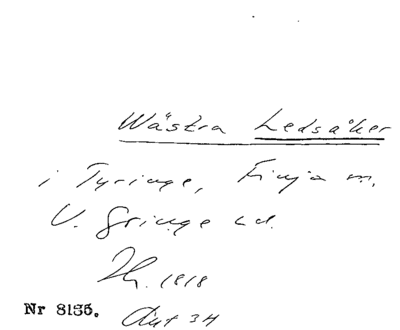 Wästra Ledsåker
i Tyringe, Finja m.
V. Göinge hd.
Th. 1818
Nr 8135. Akt 34